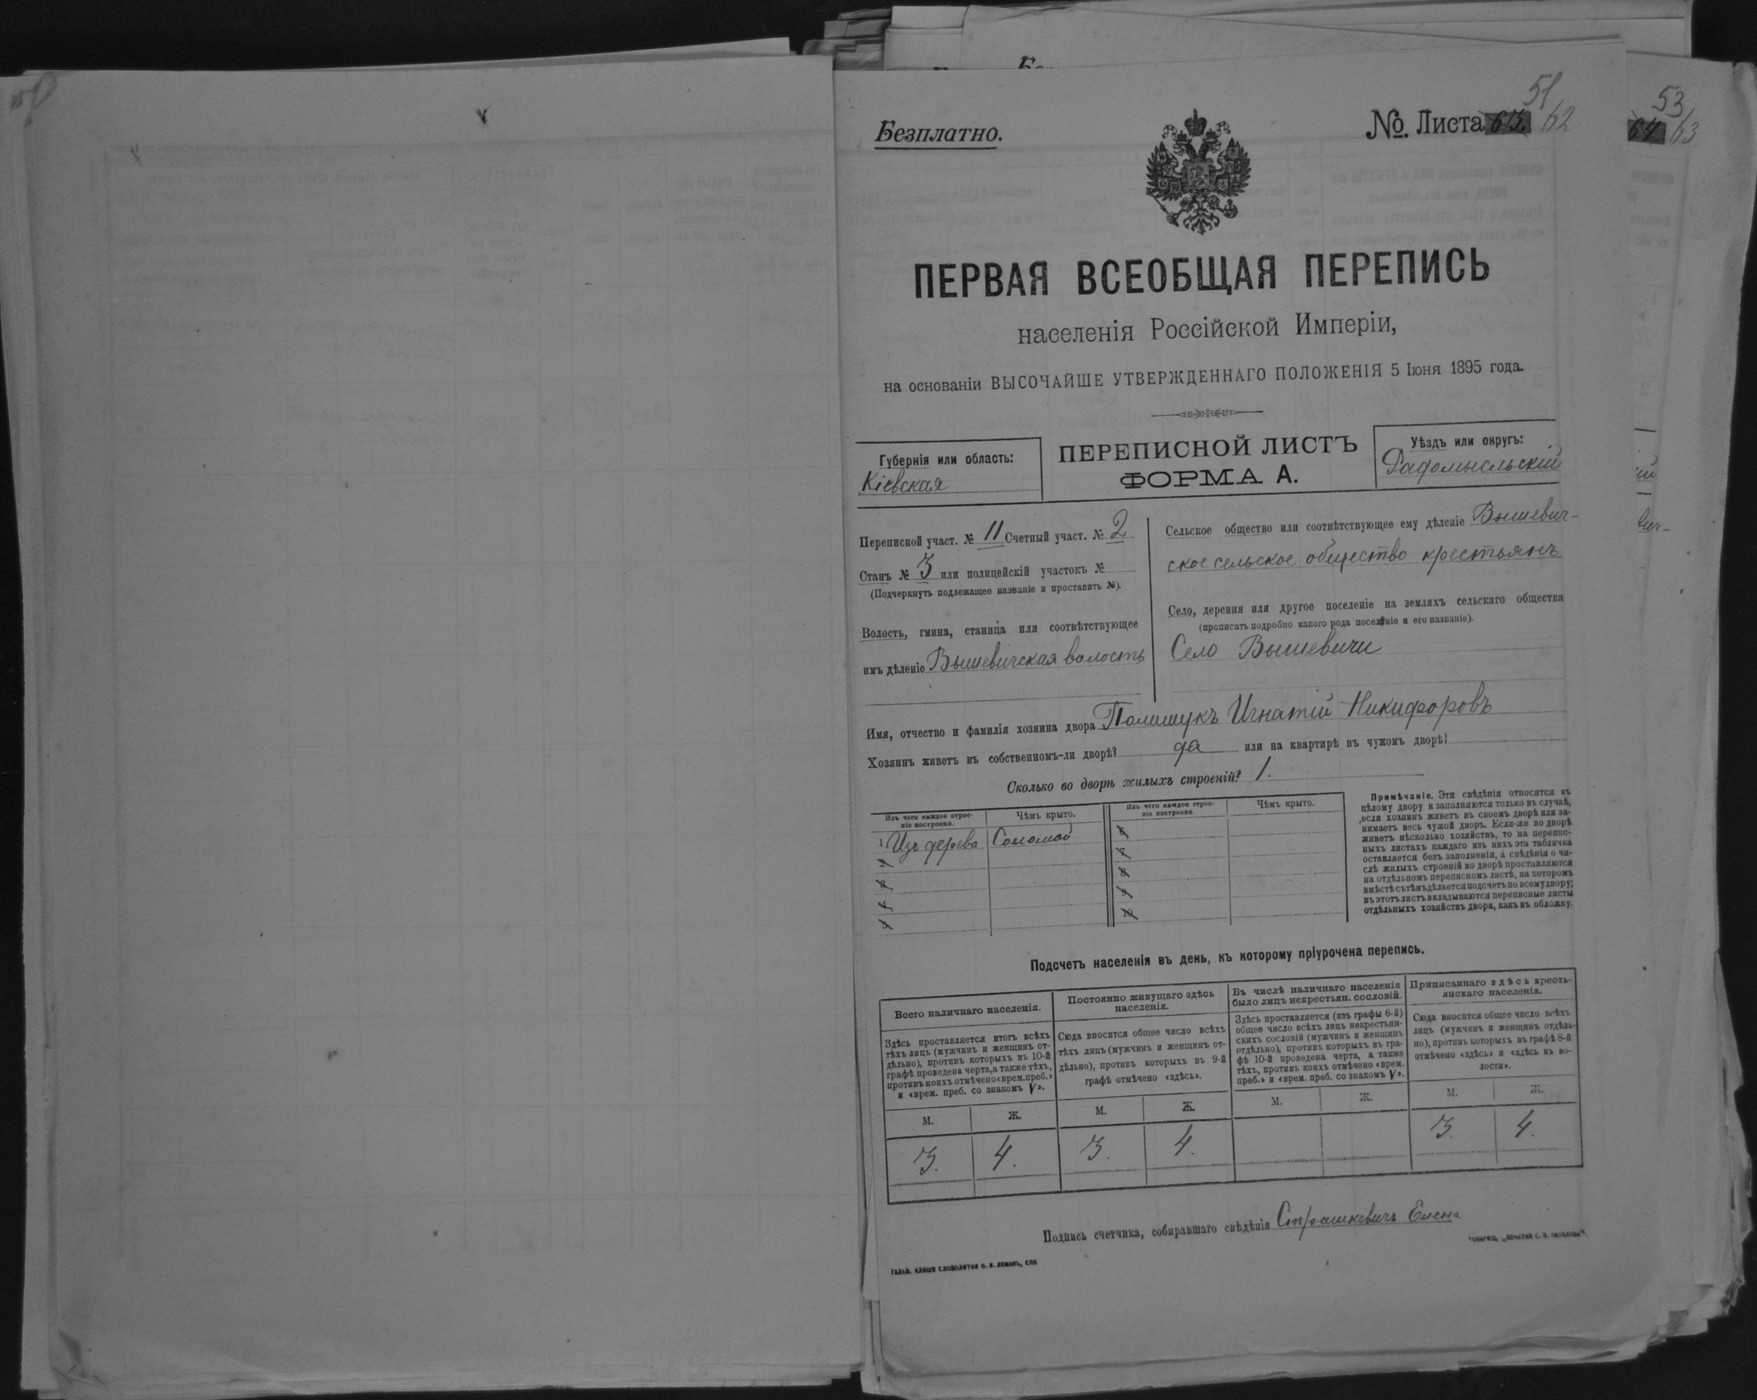 Безплатно.
№. Листа 62
51
53
63
ПЕРВАЯ ВСЕОБЩАЯ ПЕРЕПИСЬ
населенія Россійской Имперіи,
на основаніи ВЫСОЧАЙШЕ УТВЕРЖДЕННАГО ПОЛОЖЕНІЯ 5 Іюня 1895 года.
Губернія или область:
Кіевская
ПЕРЕПИСНОЙ ЛИСТЪ
ФОРМА А.
Уѣздъ или округъ:
Радомысльскій
Переписной участ. № 11 Счетный участ. № 2
Станъ № 3 или полицейскій участокъ №
(Подчеркнуть подлежащее названіе и проставить №).
Волость, гмина, станица или соотвѣтствующее
имъ дѣленіе Вышевичская волость
Сельское общество или соотвѣтствующее ему дѣленіе Вышевич-
ское сельское общество крестьянъ
Село, деревня или другое поселеніе на земляхъ сельскаго общества
(прописать подробно какого рода поселеніе и его названіе).
Село Вышевичи
Имя, отчество и фамилія хозяина двора Полищукъ Игнатій Никифоровъ
Хозяинъ живетъ въ собственномъ-ли дворѣ? да или на квартирѣ въ чужомъ дворѣ?
Сколько во дворѣ жилыхъ строеній? 1.
Изъ чего каждое строе-
ніе построено.
Чѣмъ крыто.
Изъ чего каждое строе-
ніе построено.
Чѣмъ крыто.
1 Изъ дерева Соломой
Примѣчаніе. Эти свѣдѣнія относятся къ
цѣлому двору и заполняются только въ случаѣ,
если хозяинъ живетъ въ своемъ дворѣ или за-
нимаетъ весь чужой дворъ. Если-же во дворѣ
живетъ нѣсколько хозяйствъ, то на перепис-
ныхъ листахъ каждаго изъ нихъ эта табличка
оставляется безъ заполненія, а свѣдѣнія о чи-
слѣ жилыхъ строеній во дворѣ проставляются
на отдѣльномъ переписномъ листѣ, на которомъ
вмѣстѣ съ тѣмъ дѣлается подсчетъ по всему двору;
въ этотъ листъ вкладываются переписные листы
отдѣльныхъ хозяйствъ двора, какъ въ обложку.
Подсчетъ населенія въ день, къ которому пріурочена перепись.
Всего наличнаго населенія.
Здѣсь проставляется итогъ всѣхъ
тѣхъ лицъ (мужчинъ и женщинъ от-
дѣльно), противъ которыхъ въ 10-й
графѣ проведена черта, а также тѣхъ,
противъ коихъ отмѣчено «врем. преб.»
и «врем. преб. со знакомъ V».
Постоянно живущаго здѣсь
населенія.
Сюда вносится общее число всѣхъ
тѣхъ лицъ (мужчинъ и женщинъ от-
дѣльно), противъ которыхъ въ 9-й
графѣ отмѣчено «здѣсь».
Въ числѣ наличнаго населенія
было лицъ некрестьян. сословій.
Здѣсь проставляется (изъ графы 6-й)
общее число всѣхъ лицъ некрестьян-
скихъ сословій (мужчинъ и женщинъ
отдѣльно), противъ которыхъ въ гра-
фѣ 10-й проведена черта, а также
тѣхъ, противъ коихъ отмѣчено «врем.
преб.» и «врем. преб. со знакомъ V».
Приписаннаго здѣсь кресть-
янскаго населенія.
Сюда вносится общее число всѣхъ
лицъ (мужчинъ и женщинъ отдѣль-
но), противъ которыхъ въ графѣ 8-й
отмѣчено «здѣсь» и «здѣсь въ во-
лости».
М. Ж. М. Ж. М. Ж. М. Ж.
3. 4. 3. 4. 3. 4.
Подпись счетчика, собиравшаго свѣдѣнія Страшкевичъ Елена